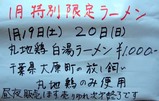 1月特別限定ラーメン
1月19日(土) 20日(日)
丸地鶏白湯ラーメン ¥1,000-
千葉県大原町の放し飼い
丸地鶏のみ使用
昼夜限定
売り切れ次第終了です